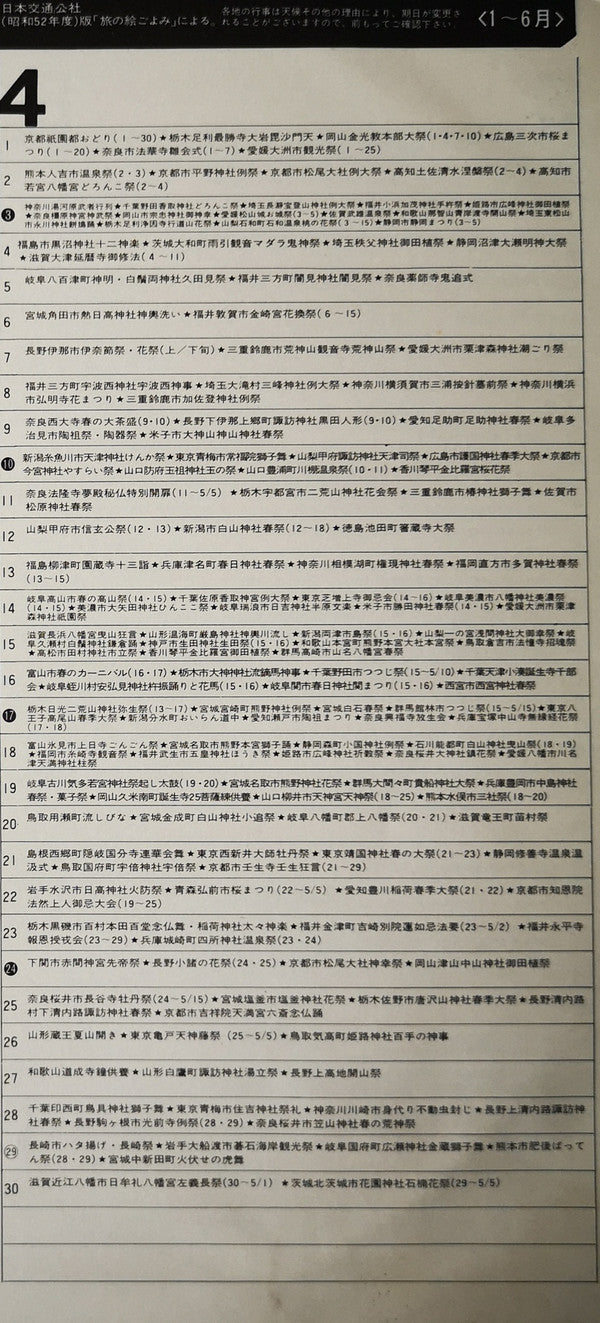 日本交通公社
(昭和52年度)版「旅の絵ごよみ」による。
各地の行事は天候その他の理由により、期日が変更さ
れることがございますので、前もってご確認下さい。
〈1〜6月〉
4
1 京都祇園都おどり(1〜30)★栃木足利最勝寺大岩毘沙門天★岡山金光教本部大祭(1・4・7・10)★広島三次市桜ま
つり(1〜20)★奈良市法華寺雛会式(1〜7)★愛媛大洲市観光祭(1〜25)
2 熊本人吉市温泉祭(2・3)★京都市平野神社例祭★京都市松尾大社例大祭★高知土佐清水涅槃祭(2〜4)★高知市
若宮八幡宮どろんこ祭(2〜4)
3 神奈川湯河原武者行列★千葉野田香取神社どろんこ祭★埼玉長瀞宝登山神社例大祭★福井小浜加茂神社手杵祭★姫路市広峰神社御田植祭
★奈良橿原神宮神武祭★岡山市宗忠神社御神幸★愛媛松山城お城祭(3〜5)★佐賀武雄温泉祭★和歌山那智山青岸渡寺開山祭★埼玉東松山
市永川神社獅子舞★栃木足利浄因寺行道山花祭★山梨石和町石和温泉桃の花祭(3〜15)★静岡市静岡まつり(3〜5)
4 福島市黒沼神社十二神楽★茨城大和町雨引観音マダラ鬼神祭★埼玉秩父神社御田植祭★静岡沼津大瀬明神大祭
★滋賀大津延暦寺御修法(4〜11)
5 岐阜八百津町神明・白鬚両神社久田見祭★福井三方町闇見神社闇見祭★奈良薬師寺鬼追式
6 宮城角田市熱日高神社神輿洗い★福井敦賀市金崎宮花換祭(6〜15)
7 長野伊那市伊奈節祭・花祭(上/下旬)★三重鈴鹿市荒神山観音寺荒神山祭★愛媛大洲市粟津森神社潮ごり祭
8 福井三方町宇波西神社宇波西神事★埼玉大滝村三峰神社例大祭★神奈川横須賀市三浦按針墓前祭★神奈川横浜
市弘明寺花まつり★三重鈴鹿市加佐登神社例祭
9 奈良西大寺春の大茶盛(9・10)★長野下伊那上郷町諏訪神社黒田人形(9・10)★愛知足助町足助神社春祭★岐阜多
治見市陶祖祭・陶器祭★米子市大神山神社春祭
10 新潟糸魚川市天津神社けんか祭★東京青梅市常福院獅子舞★山梨甲府諏訪神社天津司祭★広島市護国神社春季大祭★京都市
今宮神社やすらい祭★山口防府玉祖神社玉の祭★山口豊浦町川棚温泉祭(10・11)★香川琴平金比羅宮桜花祭
11 奈良法隆寺夢殿秘仏特別開扉(11〜5/5)★栃木宇都宮市二荒山神社花会祭★三重鈴鹿市椿神社獅子舞★佐賀市
松原神社春祭
12 山梨甲府市信玄公祭(12・13)★新潟市白山神社春祭(12〜18)★徳島池田町箸蔵寺大祭
13 福島柳津町圓蔵寺十三詣★兵庫津名町春日神社春祭★神奈川相模湖町権現神社春祭★福岡直方市多賀神社春祭
(13〜15)
14 岐阜高山市春の高山祭(14・15)★千葉佐原香取神宮例大祭★東京芝増上寺御忌会(14〜16)★岐阜美濃市八幡神社美濃祭
(14・15)★美濃市大矢田神社ひんここ祭★岐阜瑞浪市日吉神社半原文楽★米子市勝田神社春祭(14・15)★愛媛大洲市粟津
森神社祇園祭
15 滋賀長浜八幡宮曳山狂言★山形温海町厳島神社神輿川流し★新潟両津市島祭(15・16)★山梨一の宮浅間神社大御幸祭★岐
阜久瀬村白鬚神社鎌倉踊★神戸市生田神社生田祭(15・16)★和歌山本宮町熊野本宮大社本宮祭★鳥取倉吉市法幢寺招魂祭
★高松市田村神社市立祭★香川琴平金比羅宮御田植祭★群馬高崎市山名八幡宮春祭
16 富山市春のカーニバル(16・17)★栃木市大神神社流鏑馬神事★千葉野田市つつじ祭(15〜5/10)★千葉天津小湊誕生寺千部
会★岐阜蛭川村安弘見神社杵振踊りと花馬(15・16)★岐阜関市春日神社関まつり(15・16)★西宮市西宮神社春祭
17 栃木日光二荒山神社弥生祭(13〜17)★宮城宮崎町熊野神社例祭★宮城白石春祭★群馬館林市つつじ祭(15〜5/15)★東京八
王子高尾山春季大祭★新潟分水町おいらん道中★愛知瀬戸市陶祖まつり★奈良興福寺放生会★兵庫宝塚中山寺無縁経花祭
(17・18)
18 富山氷見市上日寺ごんごん祭★宮城名取市熊野本宮獅子踊★静岡森町小国神社例祭★石川能都町白山神社曳山祭(18・19)
★福岡市糸崎寺観音祭★福井武生市五皇神社ほうき祭★姫路市広峰神社祈穀祭★奈良桜井大神社鎮花祭★愛媛八幡市川名
津天満神社柱祭
19 岐阜古川気多若宮神社祭起し太鼓(19・20)★宮城名取市熊野神社花祭★群馬大間々町貴船神社大祭★兵庫豊岡市中島神社
春祭・菓子祭★岡山久米南町誕生寺25菩薩棟供養★山口柳井市天神宮天神祭(18〜25)★熊本水俣市三社祭(18〜20)
20 鳥取用瀬町流しびな★宮城金成町白山神社小迫祭★岐阜八幡町郡上八幡祭(20・21)★滋賀竜王町苗村祭
21 島根西郷町隠岐国分寺連華会舞★東京西新井大師牡丹祭★東京靖国神社春の大祭(21〜23)★静岡修善寺温泉温
汲式★鳥取国府町宇倍神社宇倍祭★京都市壬生寺壬生狂言(21〜29)
22 岩手水沢市日高神社火防祭★青森弘前市桜まつり(22〜5/5)★愛知豊川稲荷春季大祭(21・22)★京都市知恩院
法然上人御忌大会(19〜25)
23 栃木黒磯市百村本田百堂念仏舞・稲荷神社太々神楽★福井金津町吉崎別院蓮如忌法要(23〜5/2)★福井永平寺
報恩授戒会(23〜29)★兵庫城崎町四所神社温泉祭(23・24)
24 下関市赤間神宮先帝祭★長野小諸の花祭(24・25)★京都市松尾大社神幸祭★岡山津山中山神社御田植祭
25 奈良桜井市長谷寺牡丹祭(24〜5/15)★宮城塩釜市塩釜神社花祭★栃木佐野市唐沢山神社春季大祭★長野清内路
村下清内路諏訪神社春祭★京都市吉祥院天満宮六斎念仏踊
26 山形蔵王夏山開き★東京亀戸天神藤祭(25〜5/5)★鳥取気高町姫路神社百手の神事
27 和歌山道成寺鐘供養★山形白鷹町諏訪神社湯立祭★長野上高地開山祭
28 千葉印西町鳥見神社獅子舞★東京青梅市住吉神社祭礼★神奈川川崎市身代り不動虫封じ★長野上清内路諏訪神
社春祭★長野駒ヶ根市光前寺例祭(28・29)★奈良桜井市笠山神社春の荒神祭
29 長崎市ハタ揚げ・長崎祭★岩手大船渡市碁石海岸観光祭★岐阜国府町広瀬神社金蔵獅子舞★熊本市肥後ばって
ん祭(28・29)★宮城中新田町火伏せの虎舞
30 滋賀近江八幡市日牟礼八幡宮左義長祭(30〜5/1)★茨城北茨城市花園神社石楠花祭(29〜5/5)